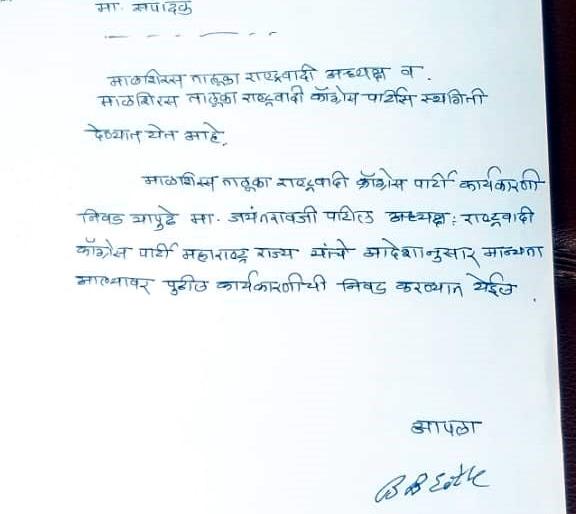 मा. संपादक
माळशिरस तालुका राष्ट्रवादी अध्यक्ष व.
माळशिरस तालुका राष्ट्रवादी काँग्रेस पार्टीस स्थगिती
देण्यात येत आहे.
माळशिरस तालुका राष्ट्रवादी काँग्रेस पार्टी कार्यकारणी
निवड यापुढे मा. जयंतरावजी पाटील अध्यक्ष: राष्ट्रवादी
काँग्रेस पार्टी महाराष्ट्र राज्य यांचे आदेशानुसार मान्यता
आल्यावर पुढील कार्यकारणीची निवड करण्यात येईल.
आपला